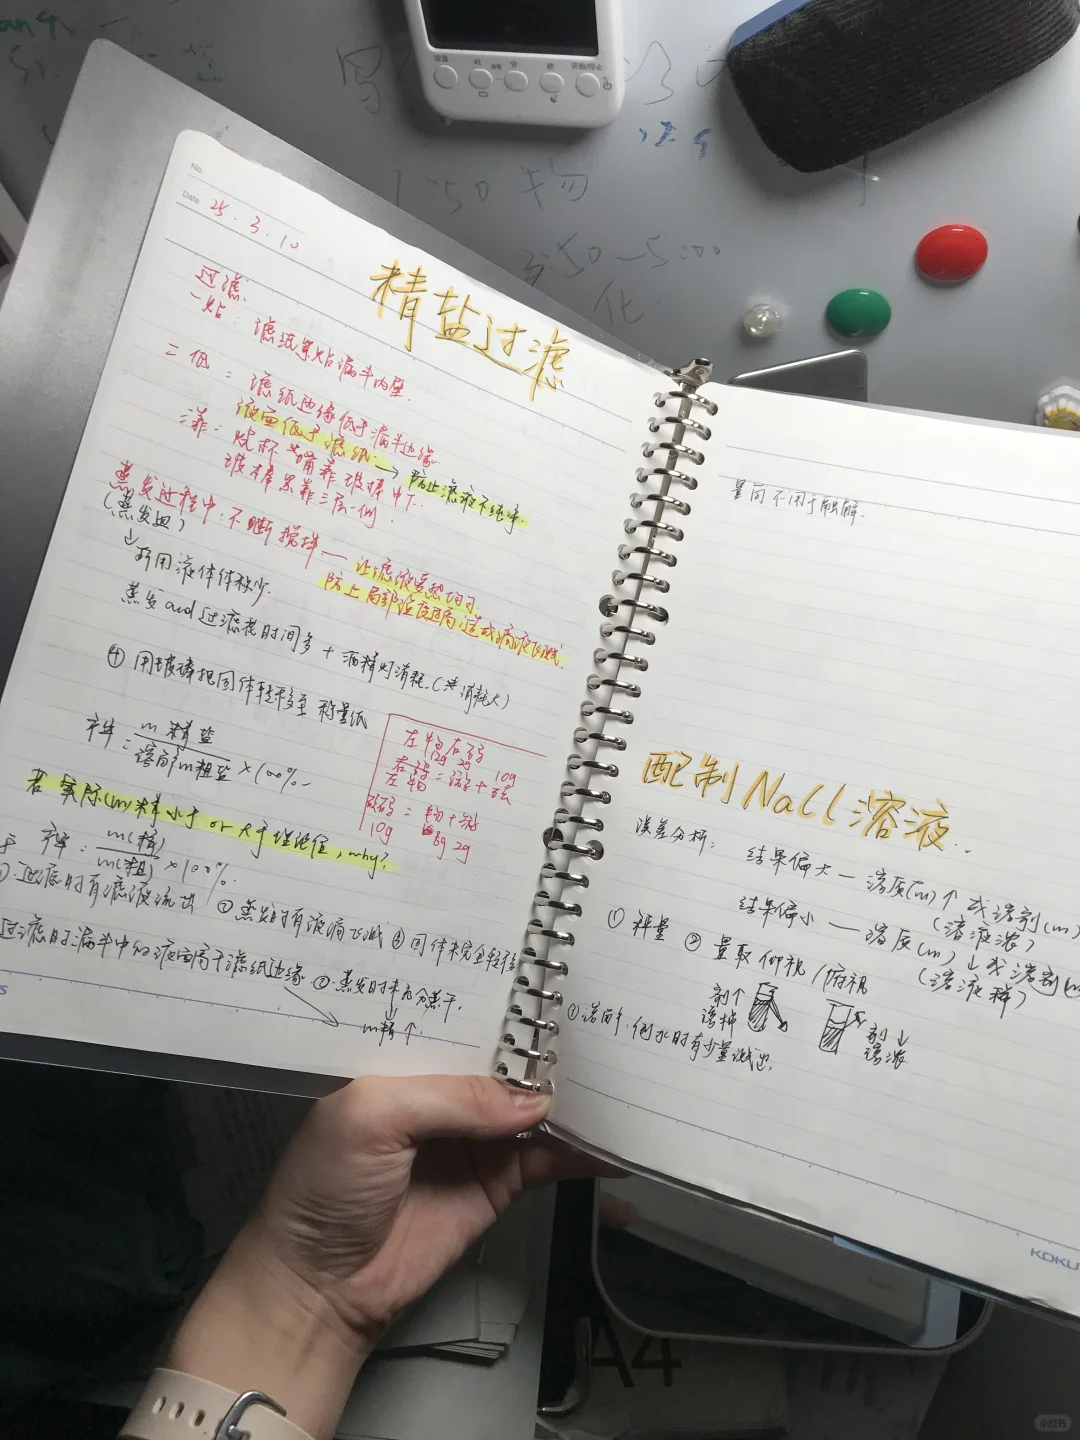 No.
Date 25.3.10
精盐过滤
过滤:
一贴: 滤纸紧贴漏斗内壁.
二低: 滤纸边缘低于漏斗边缘
液面低于滤纸. → 防止滤液不纯净.
三靠: 烧杯嘴靠玻棒中下.
玻棒紧靠三层一侧.
蒸发过程中: 不断搅拌 — 让滤液受热均匀.
防止局部温度过高,造成滴液飞溅.
(蒸发皿)
↓
所用液体体积少.
蒸发and过滤耗时间多 + 酒精灯消耗.(消耗大)
④ 用玻棒把固体转移至 称量纸
产率 = m精盐 / 溶前m粗盐 ×100%
左物右码
12g 2g 10g
右码 = 游 + 左物
砝码 = 物 + 游
10g 8g 2g
若实际(m)精小于 or 大于理论值,why?
产率: m(精) / m(粗) ×100%.
过滤时有滤液流出 ② 蒸发时有液滴飞溅 ③ 固体未完全转移
过滤时漏斗中的液面高于滤纸边缘 ② 蒸发时未充分蒸干.
↓
m精↑.
量筒不用于溶解.
配制NaCl溶液..
误差分析: 结果偏大 — 溶质(m)↑ 或溶剂(m)
(溶液浓)
结果偏小 — 溶质(m)↓ 或溶剂(m
(溶液稀)
① 秤量 ② 量取 仰视/俯视
剂↑
溶稀
剂↓
溶浓
① 溶前: 倒水时有少量溅出.
KOKU
1:50 物
3:50-5:00
化
A4
时
分
秒
开始/停止
小红书